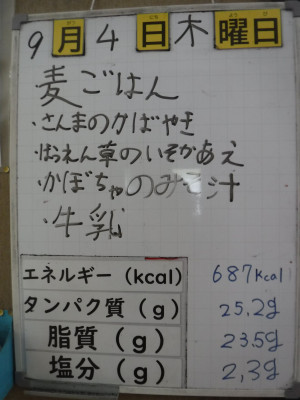 9月4日木曜日
麦ごはん
・さんまのかばやき
・ほおれん草のいそかあえ
・かぼちゃのみそ汁
・牛乳
エネルギー(kcal) 687kcal
タンパク質(g) 25.2g
脂質(g) 23.5g
塩分(g) 2,3g